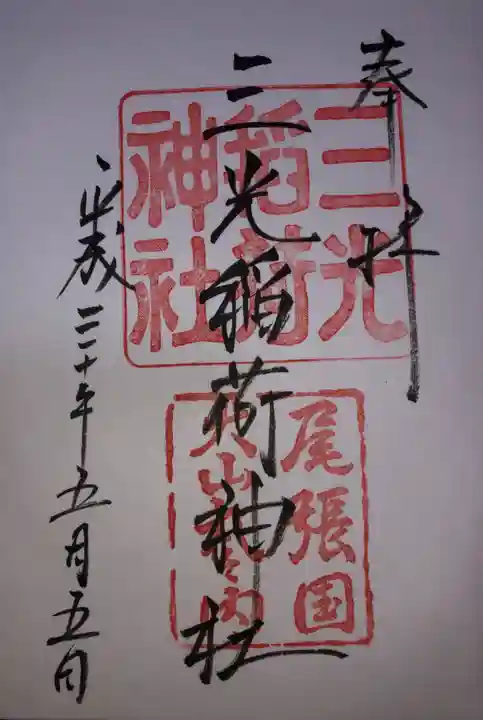 奉拝
三光
稲荷
神社
三光稲荷神社
尾張国
犬山
内
平成三十年五月五日